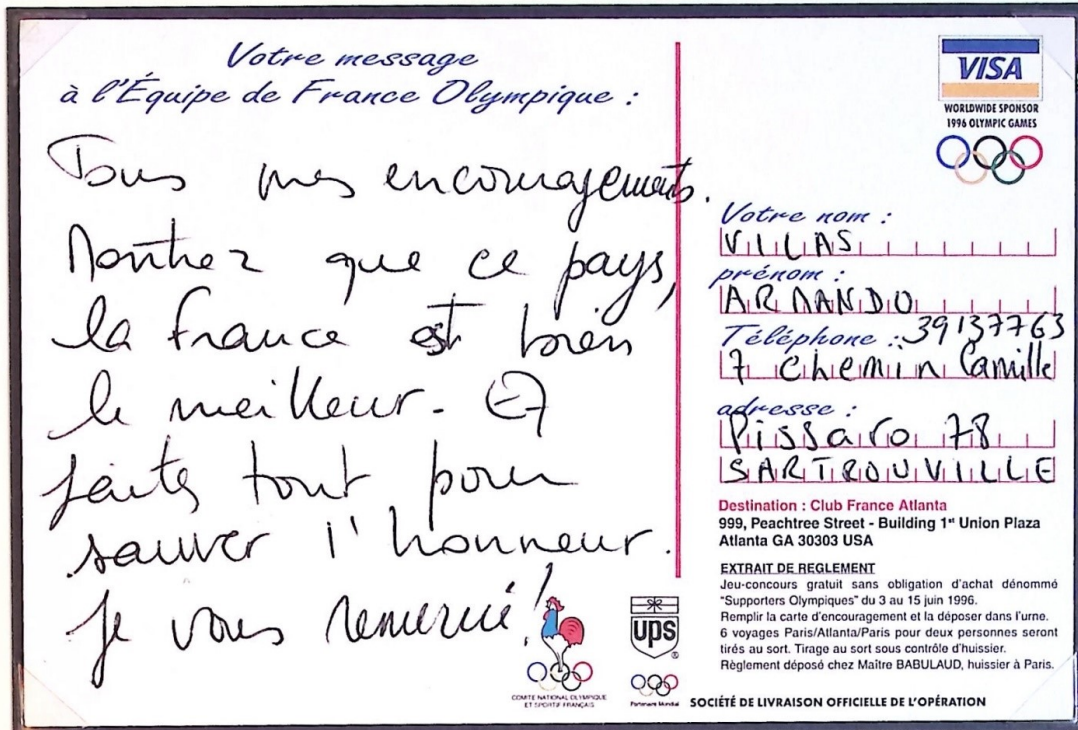 Votre message
à l'Équipe de France Olympique :
Tous mes encouragements.
Montrez que ce pays,
la france est bien
le meilleur. ET
faites tout pour
sauver l'honneur.
Je vous remercie!
COMITE NATIONAL OLYMPIQUE
ET SPORTIF FRANÇAIS
ups
Partenaire Mondial
VISA
WORLDWIDE SPONSOR
1996 OLYMPIC GAMES
Votre nom :
VILAS
prénom :
ARMANDO
Téléphone : 39137763
7 chemin Camille
adresse :
Pissaro 78
SARTROUVILLE
Destination : Club France Atlanta
999, Peachtree Street - Building 1st Union Plaza
Atlanta GA 30303 USA
EXTRAIT DE REGLEMENT
Jeu-concours gratuit sans obligation d'achat dénommé
"Supporters Olympiques" du 3 au 15 juin 1996.
Remplir la carte d'encouragement et la déposer dans l'urne.
6 voyages Paris/Atlanta/Paris pour deux personnes seront
tirés au sort. Tirage au sort sous contrôle d'huissier.
Règlement déposé chez Maître BABULAUD, huissier à Paris.
SOCIÉTÉ DE LIVRAISON OFFICIELLE DE L'OPÉRATION